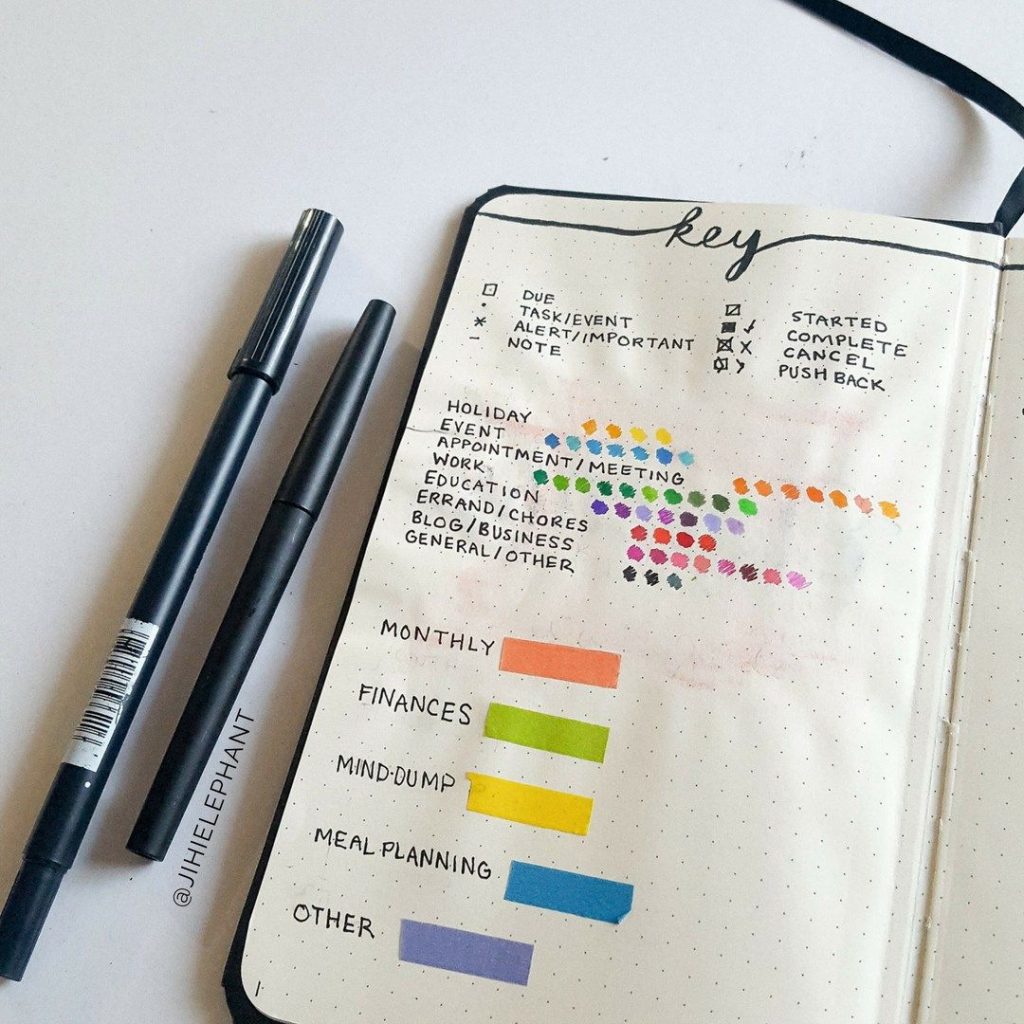 key
DUE
TASK/EVENT
ALERT/IMPORTANT
NOTE
STARTED
COMPLETE
CANCEL
PUSH BACK
HOLIDAY
EVENT
APPOINTMENT/MEETING
WORK
EDUCATION
ERRAND/CHORES
BLOG/BUSINESS
GENERAL/OTHER
MONTHLY
FINANCES
MIND-DUMP
MEAL PLANNING
OTHER
1
@JIHIELEPHANT